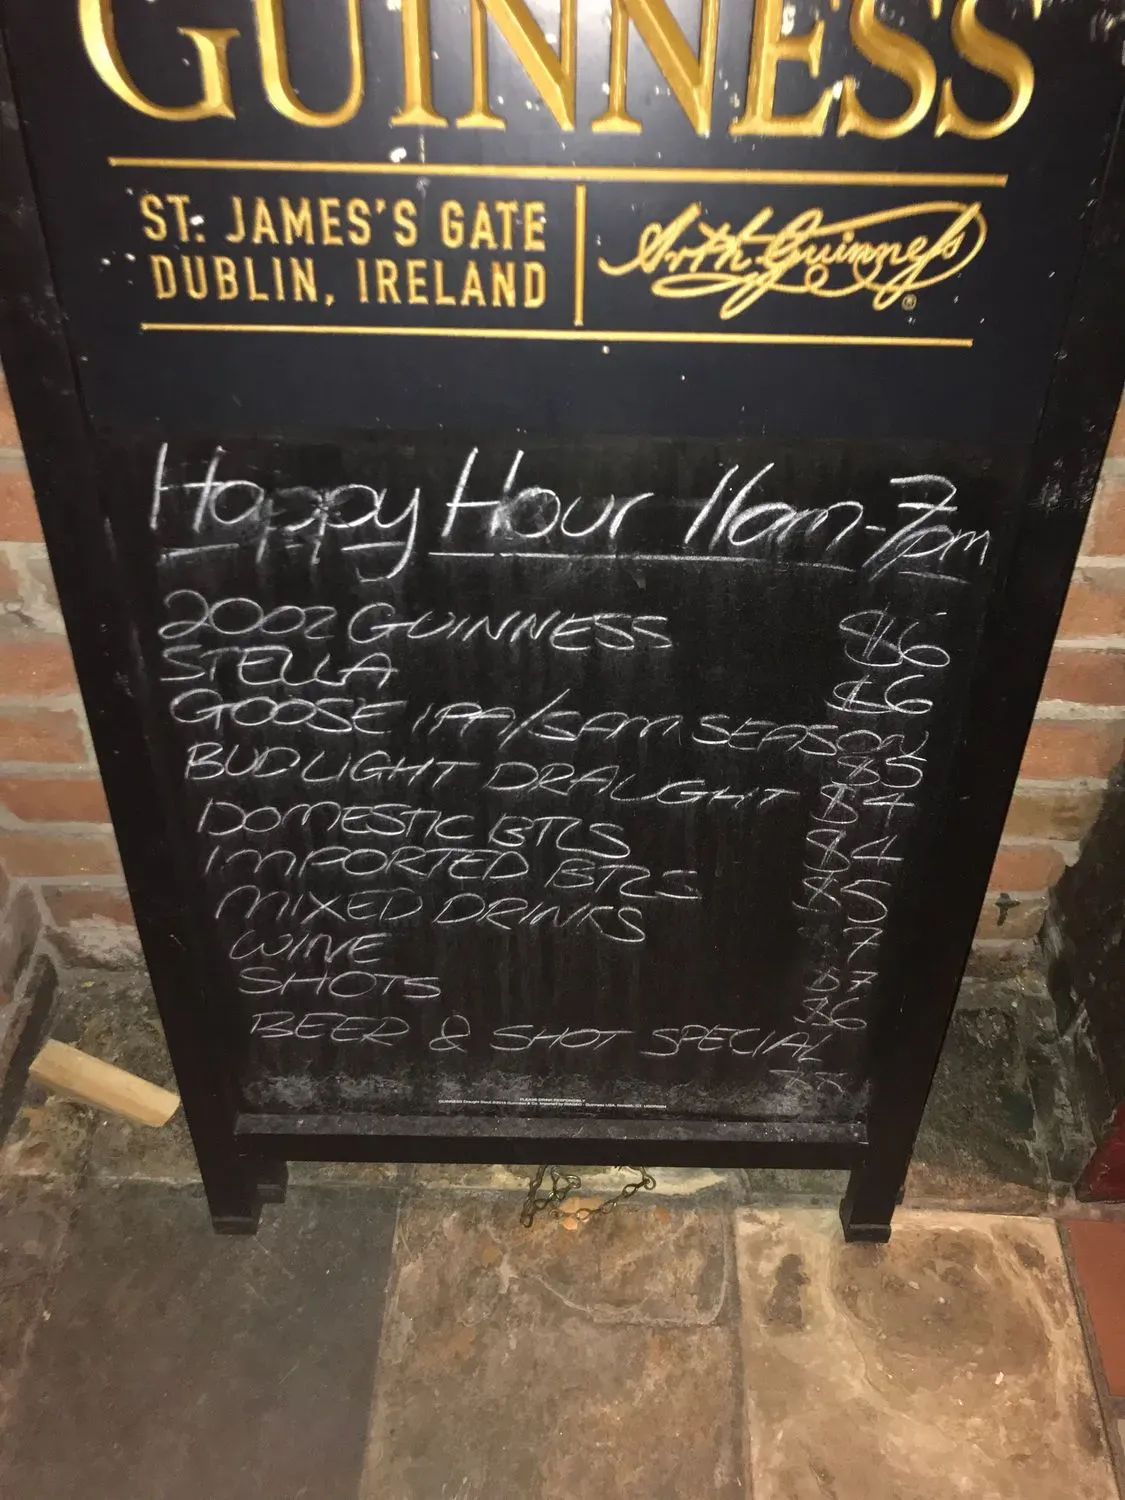 GUINNESS
ST. JAMES'S GATE
DUBLIN, IRELAND
Arth. Guinness
®
Happy Hour 11am-7pm
20oz GUINNESS $6
STELLA $6
GOOSE IPA/SAM SEASON $5
BUDLIGHT DRAUGHT $4
DOMESTIC BTLS $4
IMPORTED BTLS $5
MIXED DRINKS 7
WINE $7
SHOTS $6
BEER & SHOT SPECIAL
PLEASE DRINK RESPONSIBLY